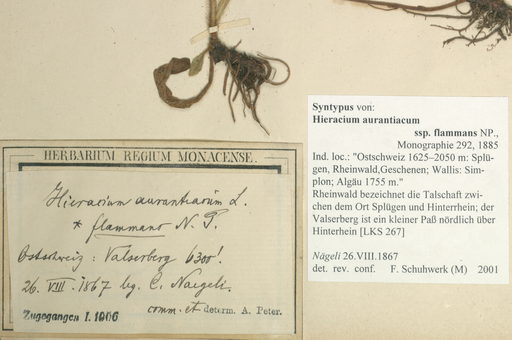 HERBARIUM REGIUM MONACENSE.
Hieracium aurantiacum L.
* flammans N. P.
Ostschweiz: Valserberg 6300'.
26. VIII. 1867 lg. C. Naegeli.
comm. et determ. A. Peter.
Zugegangen I. 1906
Syntypus von:
Hieracium aurantiacum
ssp. flammans NP.,
Monographie 292, 1885
Ind. loc.: "Ostschweiz 1625–2050 m: Splü-
gen, Rheinwald,Geschenen; Wallis: Sim-
plon; Algäu 1755 m."
Rheinwald bezeichnet die Talschaft zwi-
chen dem Ort Splügen und Hinterrhein; der
Valserberg ist ein kleiner Paß nördlich über
Hinterhein [LKS 267]
Nägeli 26.VIII.1867
det. rev. conf. F. Schuhwerk (M) 2001